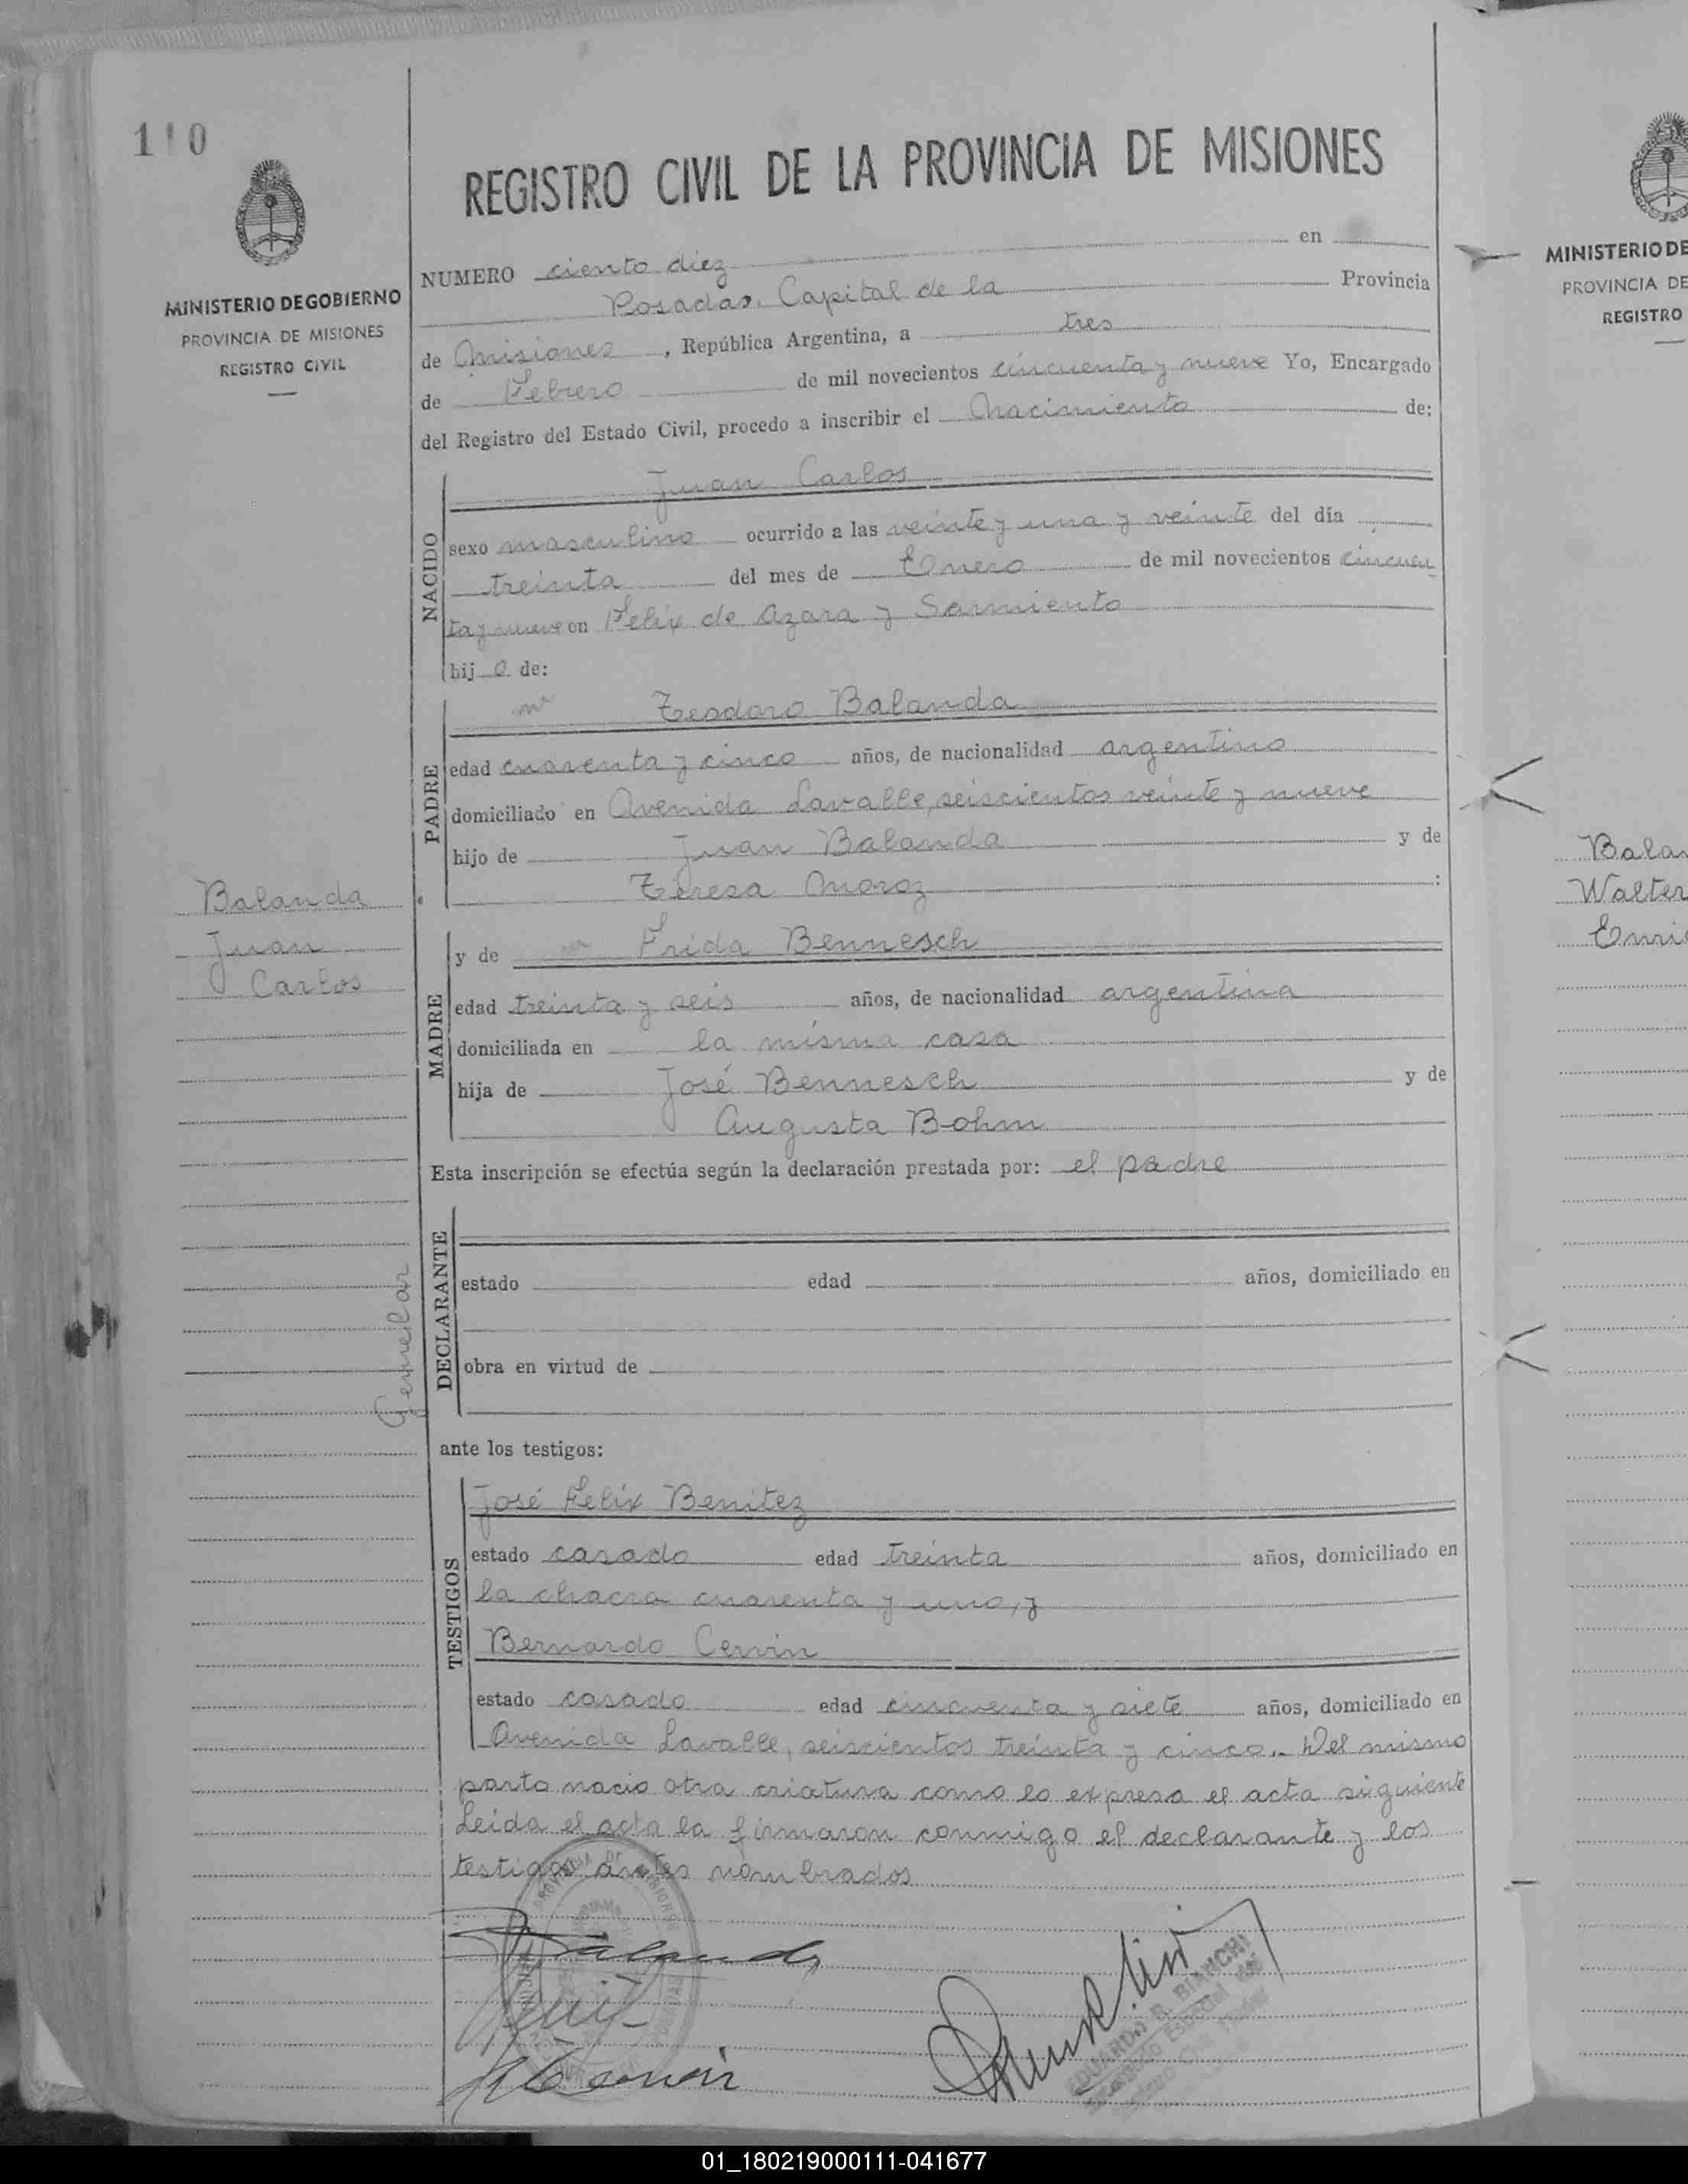 110
MINISTERIO DE GOBIERNO
PROVINCIA DE MISIONES
REGISTRO CIVIL
REGISTRO CIVIL DE LA PROVINCIA DE MISIONES
NUMERO ciento diez en
Posadas, Capital de la Provincia
de Misiones, República Argentina, a tres
de Febrero de mil novecientos cincuenta y nueve Yo, Encargado
del Registro del Estado Civil, procedo a inscribir el Nacimiento de:
NACIDO
Juan Carlos
sexo masculino ocurrido a las veinte y una y veinte del día
treinta del mes de Enero de mil novecientos cincuen
ta y nueve en Felix de Azara y Sarmiento
hijo de:
PADRE
Teodoro Balanda
edad cuarenta y cinco años, de nacionalidad argentino
domiciliado en Avenida Lavalle, seiscientos veinte y nueve
hijo de Juan Balanda y de
Teresa Moroz :
MADRE
y de Frida Bennesch
edad treinta y seis años, de nacionalidad argentina
domiciliada en la misma casa
hija de José Bennesch y de
Augusta Bohm
Esta inscripción se efectúa según la declaración prestada por: el padre
DECLARANTE
estado edad años, domiciliado en
obra en virtud de
ante los testigos:
TESTIGOS
José Felix Benitez
estado casado edad treinta años, domiciliado en
la chacra cuarenta y uno, y
Bernardo Cenin
estado casado edad cincuenta y siete años, domiciliado en
Avenida Lavalle, seiscientos treinta y cinco.. Del mismo
parto nacio otra criatura como lo expresa el acta siguiente
Leida el acta la firmaron conmigo el declarante y los
testigos antes nombrados
Balanda
EDUARDO R. BIANCHI
Balanda
Juan
Carlos
Gemelar
MINISTERIO DE
PROVINCIA DE
REGISTRO
Balan
Walter
Enri
01_180219000111-041677